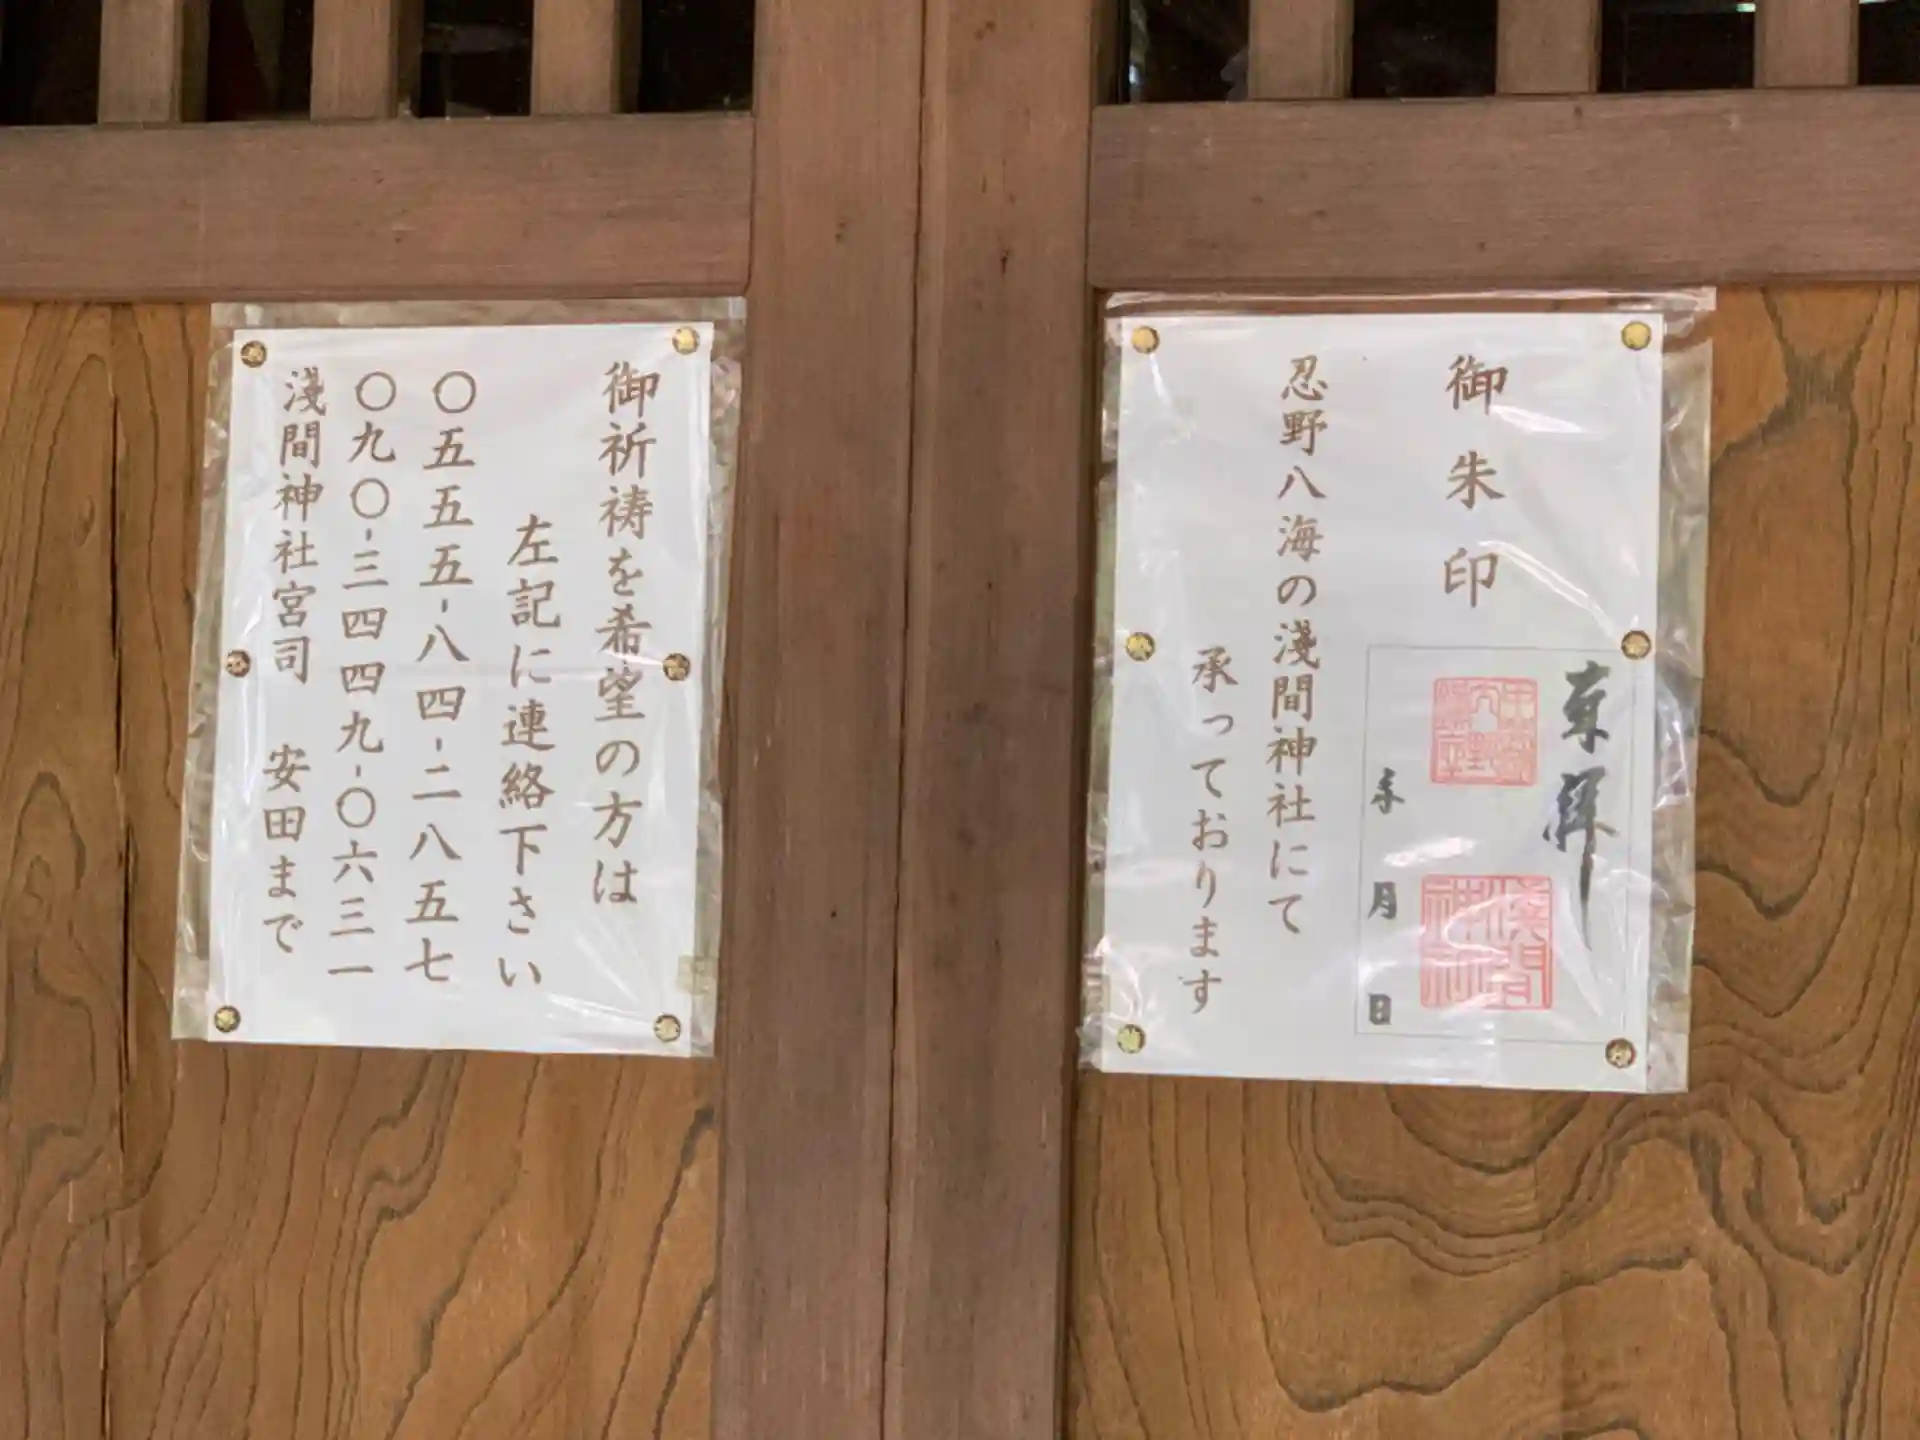 御朱印
奉拝
年月日
淺間神社
忍野八海の淺間神社にて
承っております
御祈祷を希望の方は
左記に連絡下さい
〇五五五-八四-二八五七
〇九〇-三四四九-〇六三一
淺間神社宮司 安田まで